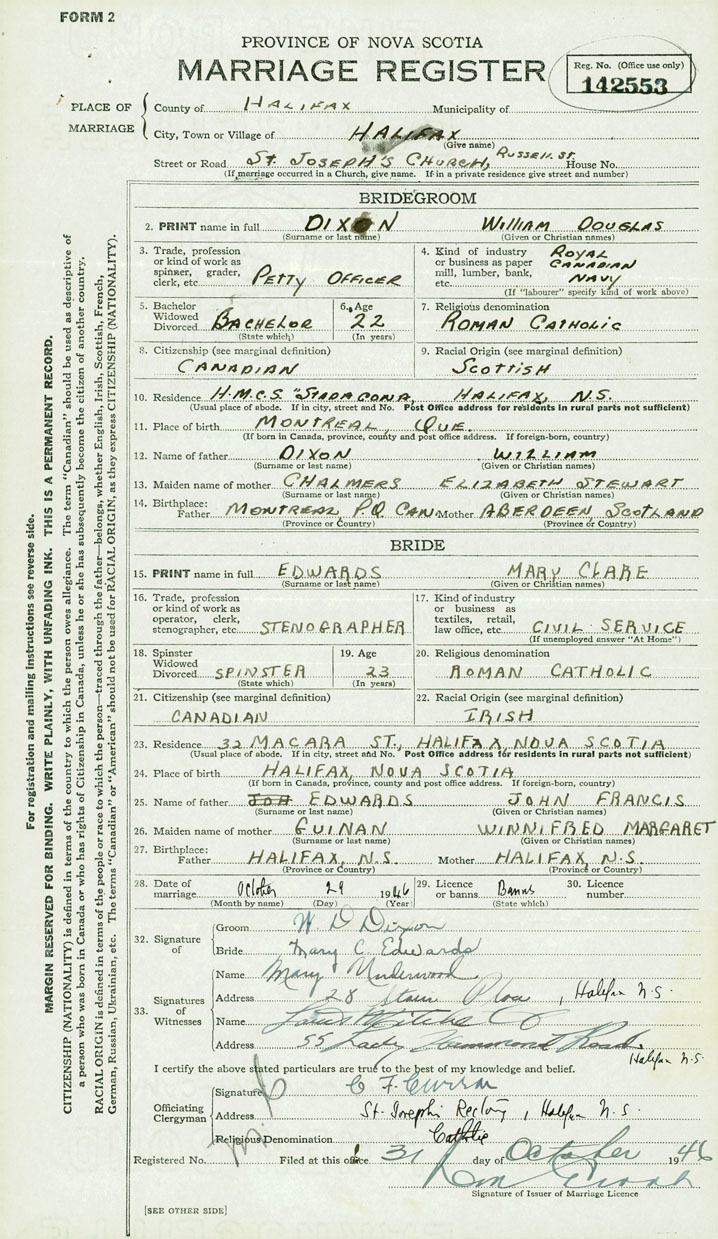 FORM 2
PROVINCE OF NOVA SCOTIA
MARRIAGE REGISTER
Reg. No. (Office use only)
142553
PLACE OF MARRIAGE
County of HALIFAX Municipality of
City, Town or Village of HALIFAX
(Give name)
Street or Road ST. JOSEPH'S CHURCH, RUSSELL ST. House No.
(If marriage occurred in a Church, give name. If in a private residence give street and number)
BRIDEGROOM
2. PRINT name in full DIXON WILLIAM DOUGLAS
(Surname or last name) (Given or Christian names)
3. Trade, profession or kind of work as spinner, grader, clerk, etc. PETTY OFFICER
4. Kind of industry or business as paper mill, lumber, bank, etc. ROYAL CANADIAN NAVY
(If "labourer" specify kind of work above)
5. Bachelor Widowed Divorced BACHELOR
(State which)
6. Age 22
(In years)
7. Religious denomination
ROMAN CATHOLIC
8. Citizenship (see marginal definition)
CANADIAN
9. Racial Origin (see marginal definition)
SCOTTISH
10. Residence H.M.C.S. "STADACONA, HALIFAX, N.S.
(Usual place of abode. If in city, street and No. Post Office address for residents in rural parts not sufficient)
11. Place of birth MONTREAL, QUE.
(If born in Canada, province, county and post office address. If foreign-born, country)
12. Name of father DIXON WILLIAM
(Surname or last name) (Given or Christian names)
13. Maiden name of mother CHALMERS ELIZABETH STEWART
(Surname or last name) (Given or Christian names)
14. Birthplace: Father MONTREAL PQ CAN. Mother ABERDEEN, SCOTLAND
(Province or Country) (Province or Country)
BRIDE
15. PRINT name in full EDWARDS MARY CLARE
(Surname or last name) (Given or Christian names)
16. Trade, profession or kind of work as operator, clerk, stenographer, etc. STENOGRAPHER
17. Kind of industry or business as textiles, retail, law office, etc. CIVIL SERVICE
(If unemployed answer "At Home")
18. Spinster Widowed Divorced SPINSTER
(State which)
19. Age 23
(In years)
20. Religious denomination
ROMAN CATHOLIC
21. Citizenship (see marginal definition)
CANADIAN
22. Racial Origin (see marginal definition)
IRISH
23. Residence 32 MACARA ST., HALIFAX, NOVA SCOTIA
(Usual place of abode. If in city, street and No. Post Office address for residents in rural parts not sufficient)
24. Place of birth HALIFAX, NOVA SCOTIA
(If born in Canada, province, county and post office address. If foreign-born, country)
25. Name of father EDWARDS JOHN FRANCIS
(Surname or last name) (Given or Christian names)
26. Maiden name of mother GUINAN WINNIFRED MARGARET
(Surname or last name) (Given or Christian names)
27. Birthplace: Father HALIFAX, N.S. Mother HALIFAX, N.S.
(Province or Country) (Province or Country)
28. Date of marriage October 29 1946
(Month by name) (Day) (Year)
29. Licence or banns Banns
(State which)
30. Licence number
32. Signature of
Groom W. D Dixon
Bride Mary C. Edwards
33. Signatures of Witnesses
Name Mary Underwood
Address 28 Place, Halifax N.S.
Name
Address 55 Lady Hammond Road, Halifax N.S.
I certify the above stated particulars are true to the best of my knowledge and belief.
Officiating Clergyman
Signature C F Curran
Address St. Joseph's Rectory, Halifax N.S.
Religious Denomination Catholic
Registered No. Filed at this office 31 day of October 1946
Signature of Issuer of Marriage Licence
[SEE OTHER SIDE]
For registration and mailing instructions see reverse side.
MARGIN RESERVED FOR BINDING. WRITE PLAINLY, WITH UNFADING INK. THIS IS A PERMANENT RECORD.
CITIZENSHIP (NATIONALITY) is defined in terms of the country to which the person owes allegiance. The term "Canadian" should be used as descriptive of
a person who was born in Canada or who has rights of Citizenship in Canada, unless he or she has subsequently become the citizen of another country.
RACIAL ORIGIN is defined in terms of the people or race to which the person—traced through the father—belongs, whether English, Irish, Scottish, French,
German, Russian, Ukrainian, etc. The terms "Canadian" or "American" should not be used for RACIAL ORIGIN, as they express CITIZENSHIP (NATIONALITY).